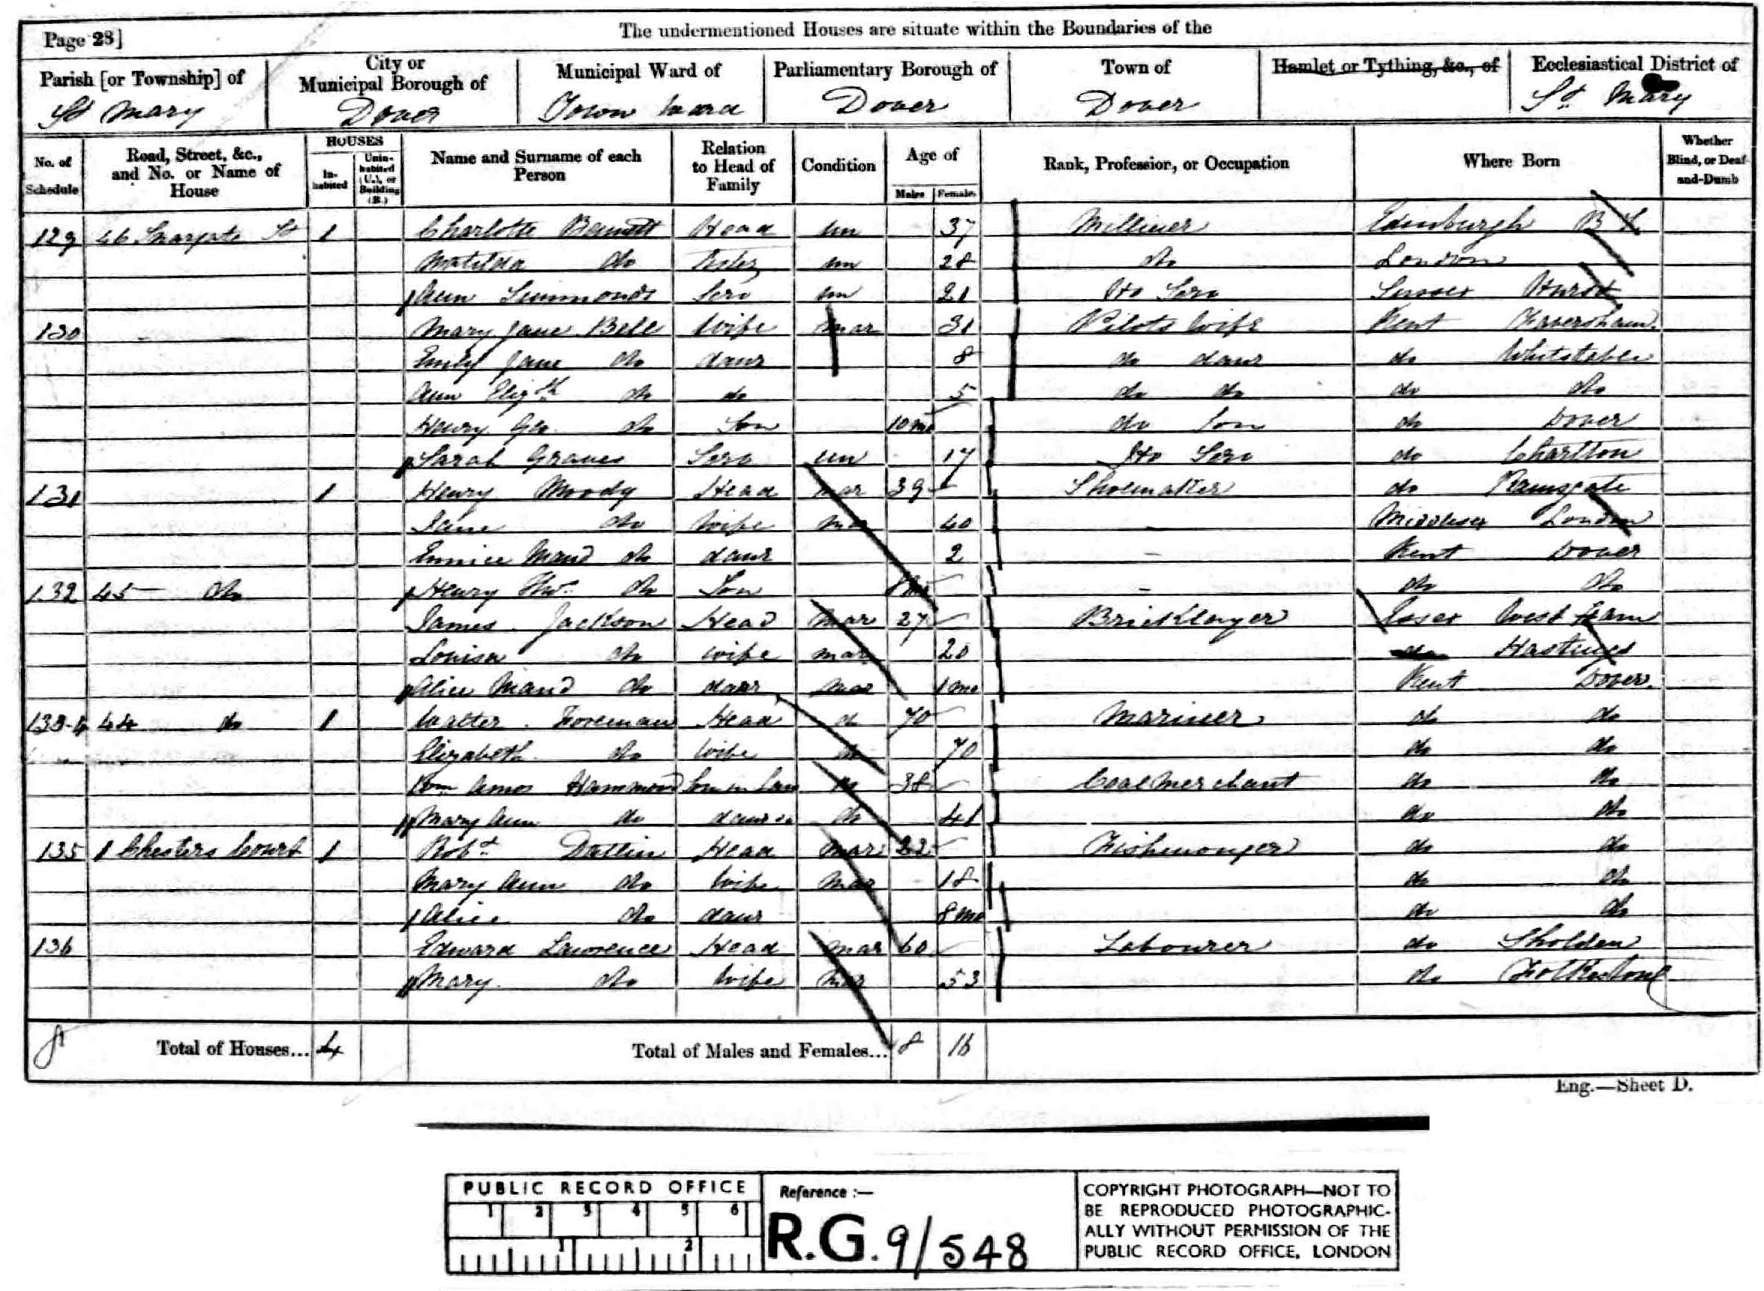 Page 23]
The undermentioned Houses are situate within the Boundaries of the
Parish [or Township] of
St Mary
City or Municipal Borough of
Dover
Municipal Ward of
Town Ward
Parliamentary Borough of
Dover
Town of
Dover
Hamlet or Tything, &c., of
Ecclesiastical District of
St. Mary
No. of Schedule
Road, Street, &c., and No. or Name of House
HOUSES
In-habited
Unin-habited (U.), or Building (B.)
Name and Surname of each Person
Relation to Head of Family
Condition
Age of
Males
Females
Rank, Profession, or Occupation
Where Born
Whether Blind, or Deaf-and-Dumb
129 46 Snargate St 1 Charlotte Bennett Head un 37 Milliner Edinburgh
Matilda do Sister un 28 do London
Ann Simmonds Serv un 21 Ho Serv Sussex Hurst
130 Mary Jane Bell Wife mar 31 Pilots Wife Kent Faversham
Emily Jane do daur 8 do daur do Whitstable
Ann Elizth do do 5 do do do do
Henry Geo. do Son 10 mo do Son do Dover
Sarah Graves Serv un 17 Ho Serv do Charlton
131 1 Henry Moody Head mar 39 Shoemaker do Ramsgate
Jane do Wife mar 40 - Middlesex London
Eunice Maud do daur 2 - Kent Dover
132 45 do Henry Thos. do Son - do do
James Jackson Head mar 27 Bricklayer Essex West Ham
Louisa do wife mar 20 Hastings
Alice Maud do daur mar 1 mo Kent Dover
133-4 44 do 1 Walter Foreman Head do 70 Mariner do do
Elizabeth do Wife do 70 do do
Wm Amos Hammond Son in Law do 38 Coal Merchant do do
Mary Ann do daur do 41 do do
135 1 Chesters Court 1 Robt Head mar 22 Fishmonger do do
Mary Ann do Wife mar 18 do do
Alice do daur 8 mo do do
136 Edward Lawrence Head mar 60 Labourer do Sholden
Mary do Wife mar 53 do Folkestone
Total of Houses... 4 Total of Males and Females... 8 16
Eng.—Sheet D.
PUBLIC RECORD OFFICE
1 2 3 4 5 6
1 2
Reference :—
R.G. 9/548
COPYRIGHT PHOTOGRAPH—NOT TO
BE REPRODUCED PHOTOGRAPHIC-
ALLY WITHOUT PERMISSION OF THE
PUBLIC RECORD OFFICE, LONDON